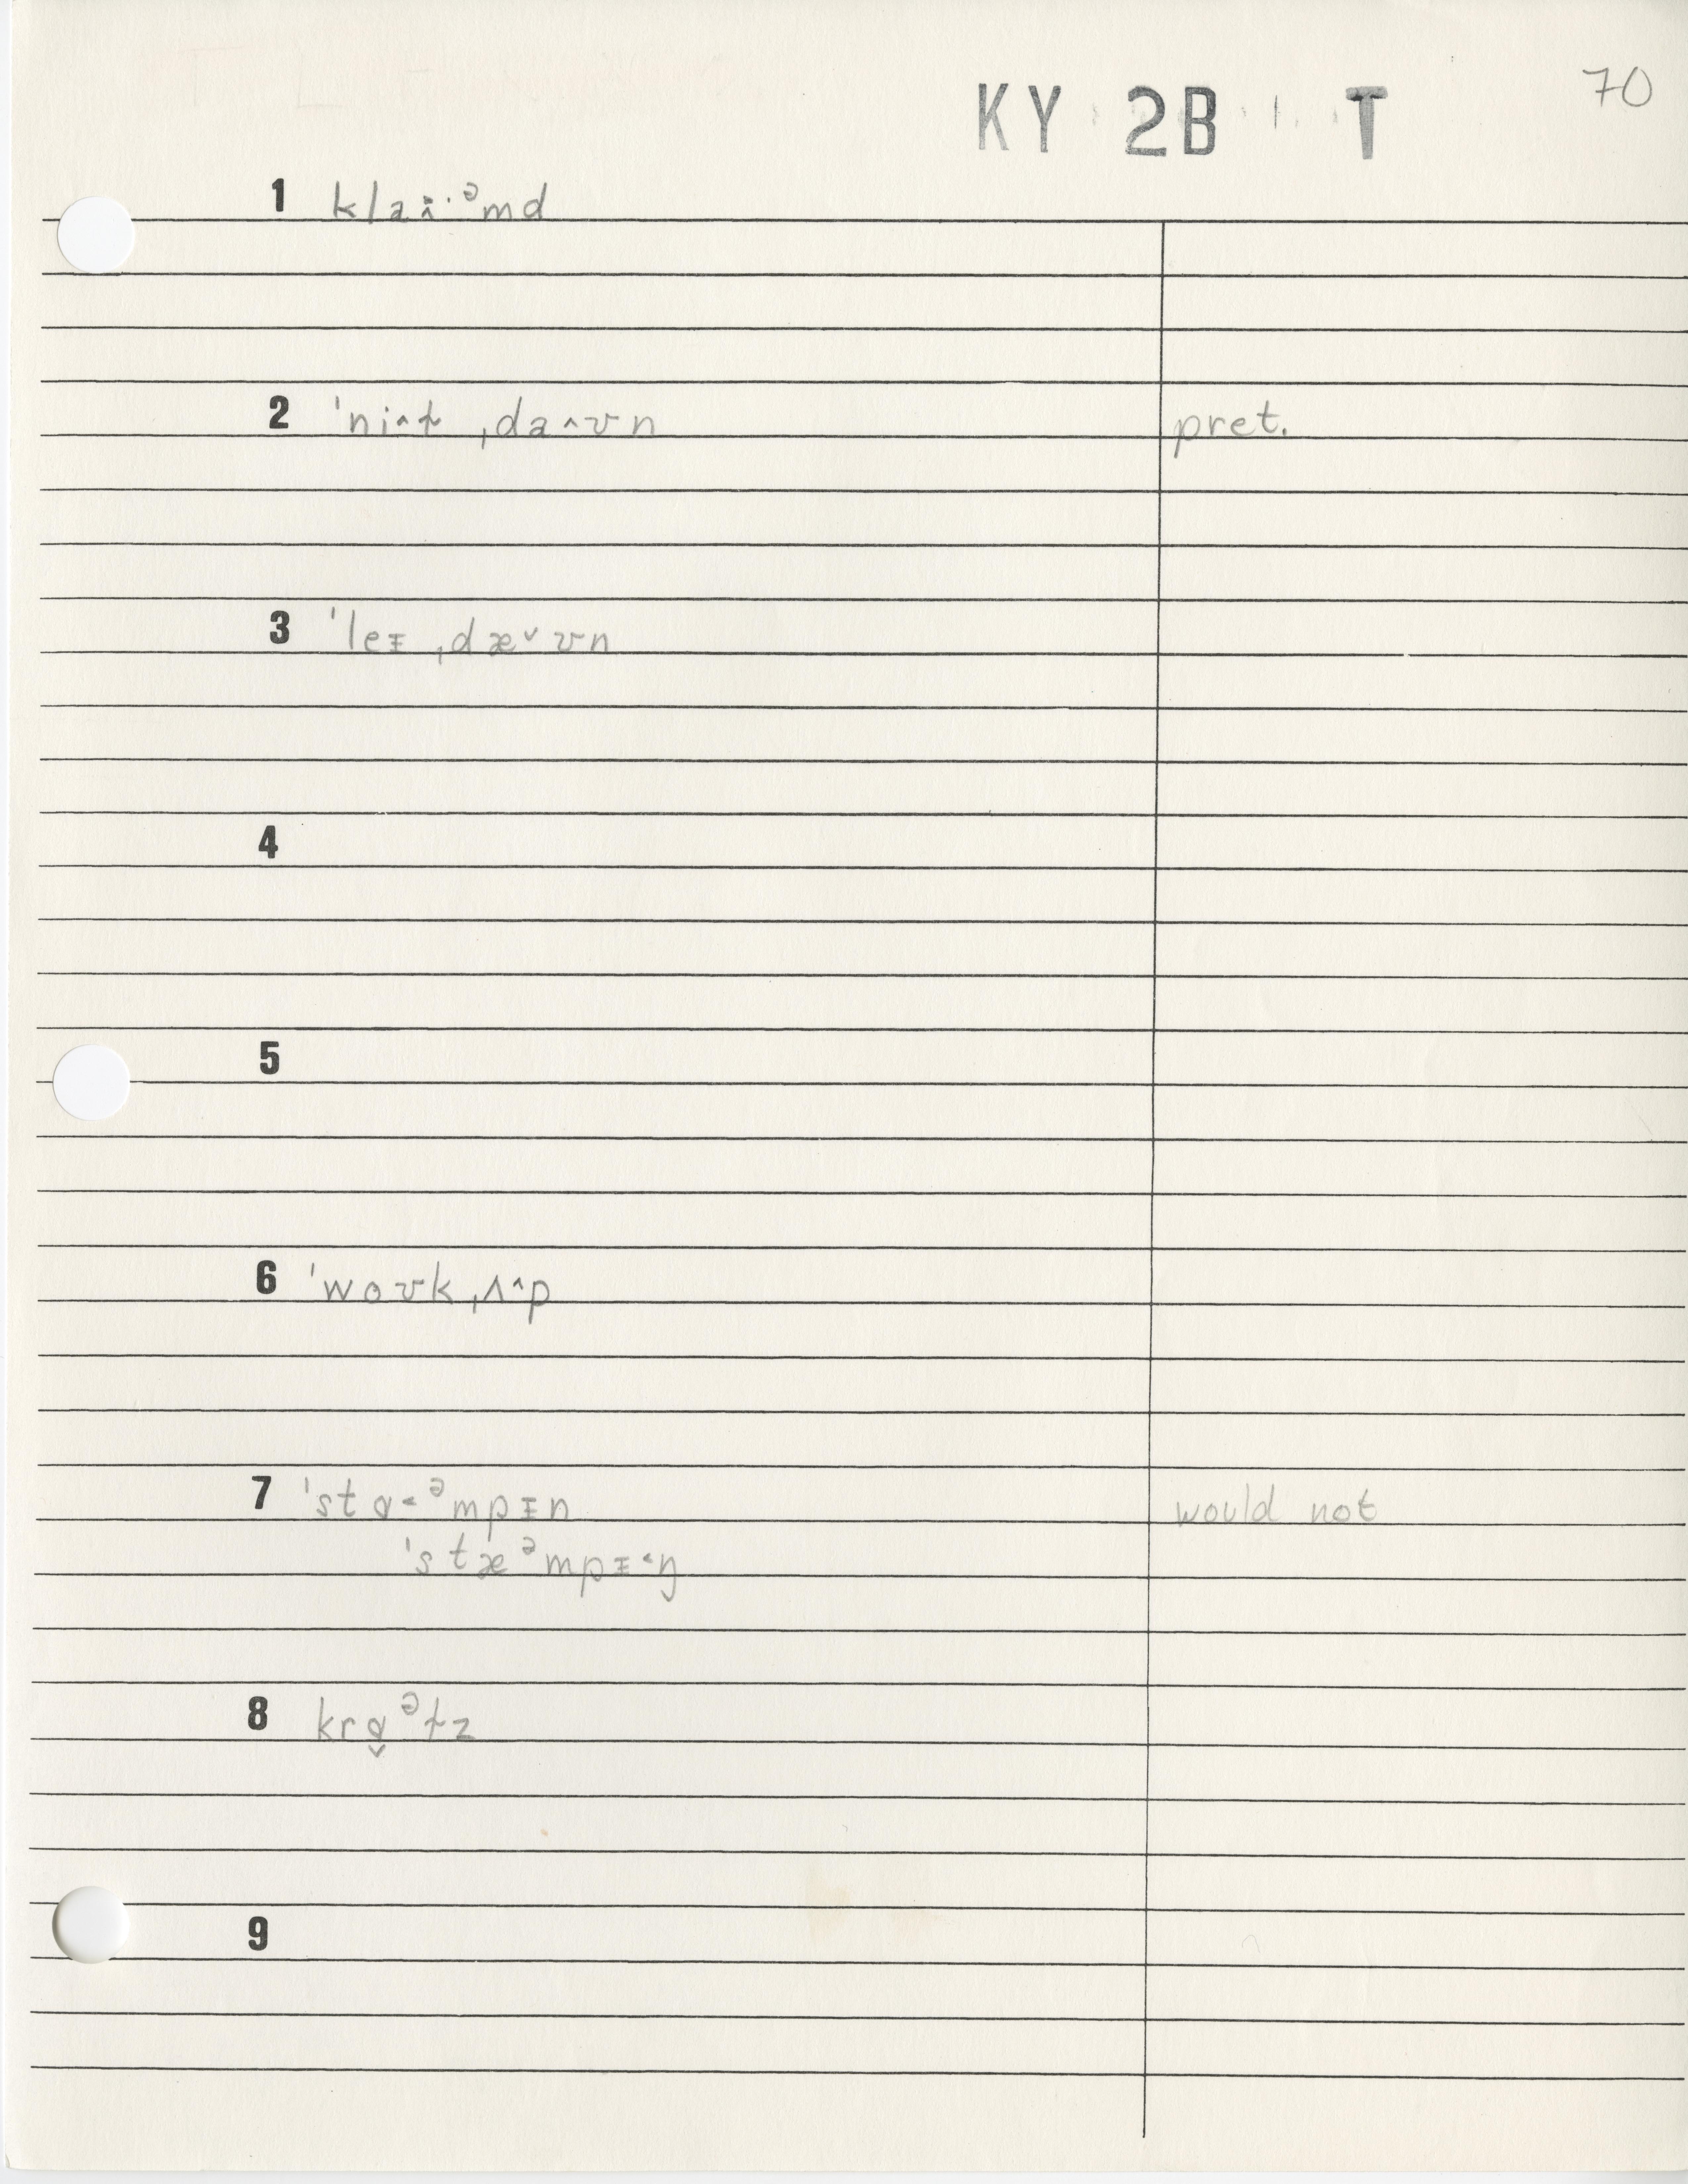 KY 2B T 70
1 klaɪ·ᵊmd
2 ˈniˑ^t̬ ˌda^ʊn pret.
3 ˈleᵻ ˌdæ˅ʊn
4
5
6 ˈwoʊkˌʌ^p
7 ˈstɑ˂ᵊmpᵻn would not
ˈstæᵊmpᵻ˂ŋ
8 krɑ̬ᵊt̬z
9